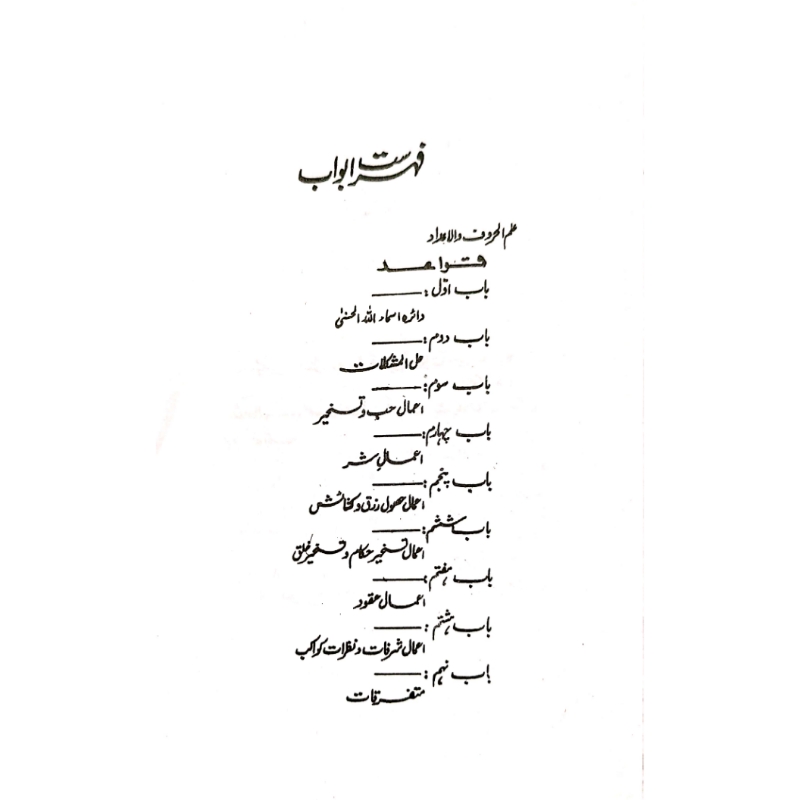 فہرست ابواب
علم الحروف والاعداد
قواعد
باب اوّل: ———
دائرہ اسماء اللہ الحسنیٰ
باب دوم: ———
حل المشکلات
باب سوم: ———
اعمال حب و تسخیر
باب چہارم: ———
اعمالِ شر
باب پنجم: ———
اعمال حصول رزق و کشائش
باب ششم: ———
اعمال تسخیر حکام و تسخیر خلق
باب ہفتم: ———
اعمال عقود
باب ہشتم: ———
اعمال شرفات و نظرات کواکب
باب نہم: ———
متفرقات